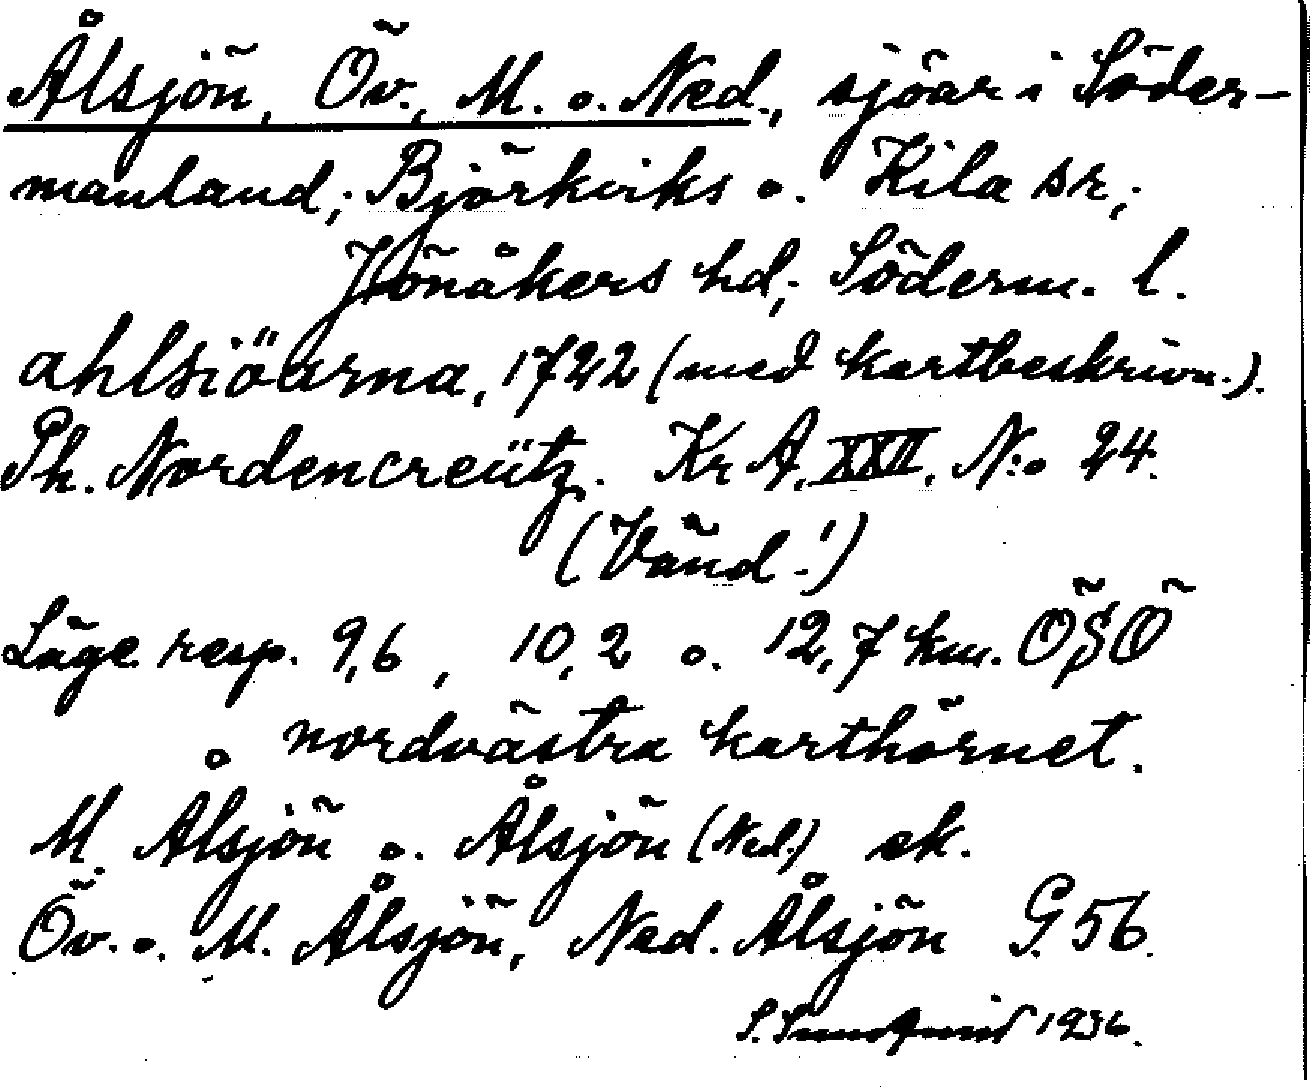 Ålsjön, Öv., M. o. Ned., sjöar i Söder-
manland; Björkviks o. Kila sr;
Jönåkers hd; Söderm. l.
ahlsiöarna, 1722 (med kartbeskrivn.).
Ph. Nordencreütz. Kr A. XXII. N:o 24.
(Vänd!)
Läge resp. 9,6, 10,2 o. 12,7 km. ÖSÖ
nordvästra karthörnet.
M. Ålsjön o. Ålsjön (Ned.) ek.
Öv. o. M. Ålsjön, Ned. Ålsjön G. 56.
S. 1936.